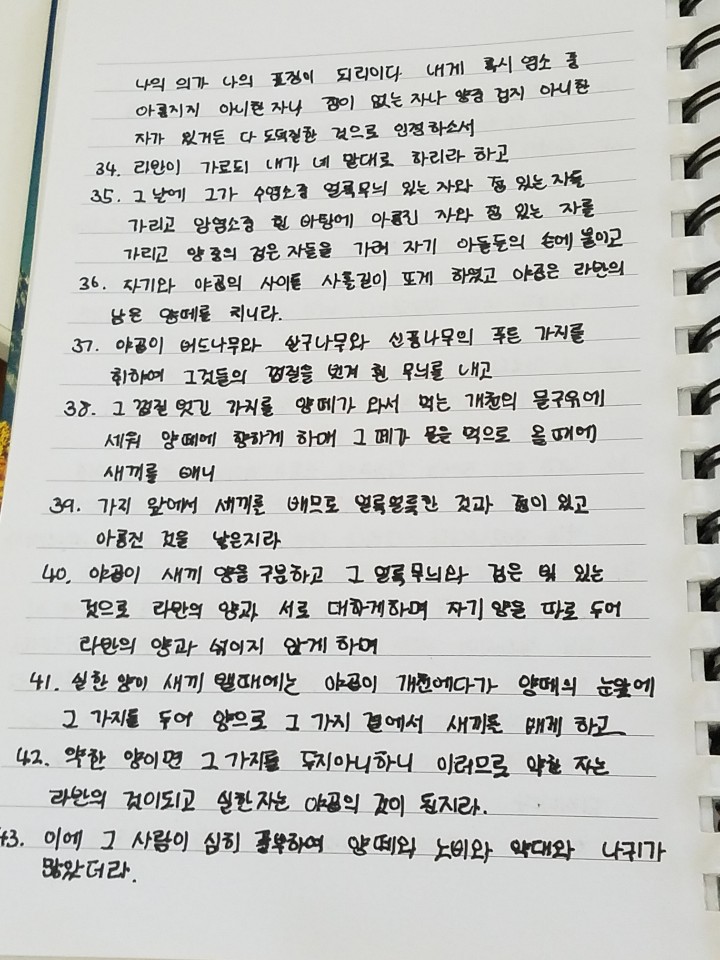 나의 의가 나의 표징이 되리이다 내게 혹시 염소 중
아롱지지 아니한 자나 점이 없는 자나 양중 검지 아니한
자가 있거든 다 도덕질한 것으로 인정하소서
34. 라반이 가로되 내가 네 말대로 하리라 하고
35. 그 날에 그가 수염소중 얼룩무늬 있는 자와 점 있는 자를
가리고 암염소중 흰 바탕에 아롱진 자와 점 있는 자를
가리고 양 중의 검은 자들을 가려 자기 아들들의 손에 붙이고
36. 자기와 야곱의 사이를 사흘길이 뜨게 하였고 야곱은 라반의
남은 양떼를 치니라.
37. 야곱이 버드나무와 살구나무와 신풍나무의 푸른 가지를
취하여 그것들의 껍질을 벗겨 흰 무늬를 내고
38. 그 껍질 벗긴 가지를 양떼가 와서 먹는 개천의 물구유에
세워 양떼에 향하게 하매 그 떼가 물을 먹으로 올 때에
새끼를 배니
39. 가지 앞에서 새끼를 배므로 얼룩얼룩한 것과 점이 있고
아롱진 것을 낳은지라
40. 야곱이 새끼 양을 구분하고 그 얼룩무늬와 검은 빛 있는
것으로 라반의 양과 서로 대하게하며 자기 양을 따로 두어
라반의 양과 섞이지 않게 하며
41. 실한 양이 새끼 밸때에는 야곱이 개천에다가 양떼의 눈앞에
그 가지를 두어 양으로 그 가지 곁에서 새끼를 배게 하고
42. 약한 양이면 그 가지를 두지아니하니 이러므로 약한 자는
라반의 것이되고 실한자는 야곱의 것이 된지라.
43. 이에 그 사람이 심히 풍부하여 양떼와 노비와 약대와 나귀가
많았더라.